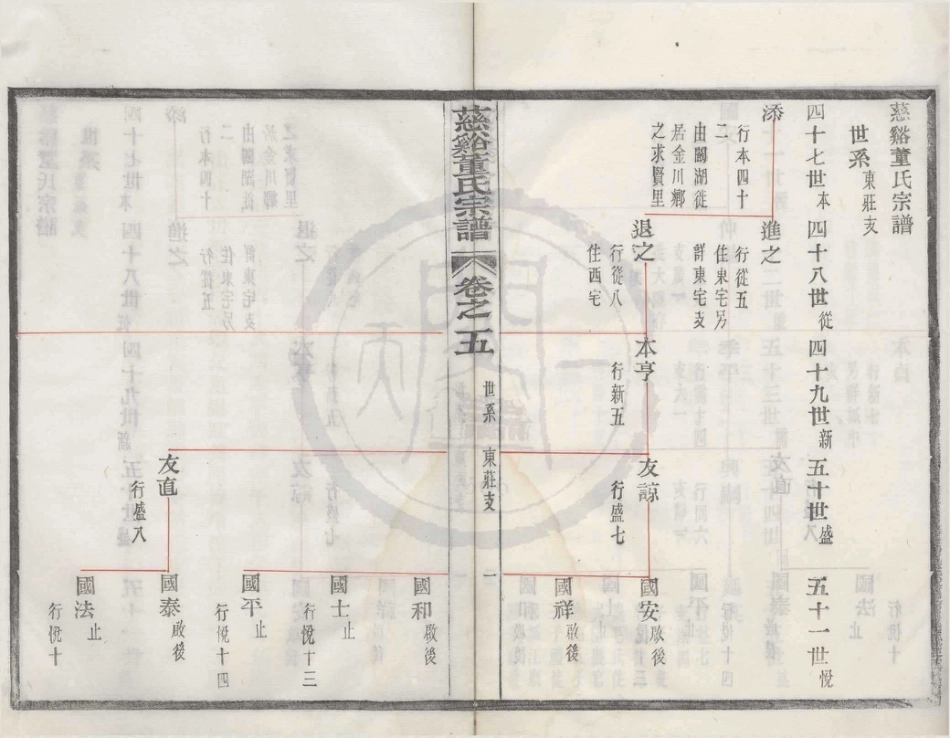 慈谿董氏宗譜
世系 東莊支
四十七世本 四十八世從 四十九世新 五十世盛 五十一世悅
添
行本四十
二
由闞湖徙
居金川鄉
之求賢里
進之
行從五
住東宅另
詳東宅支
退之
行從八
住西宅
本亨
行新五
友諒
行盛七
國安 啟後
國祥 啟後
慈谿董氏宗譜 卷之五 世系 東莊支 一
國和 啟後
國士 止
行悅十三
國平 止
行悅十四
友直
行盛八
國泰 啟後
國法 止
行悅十